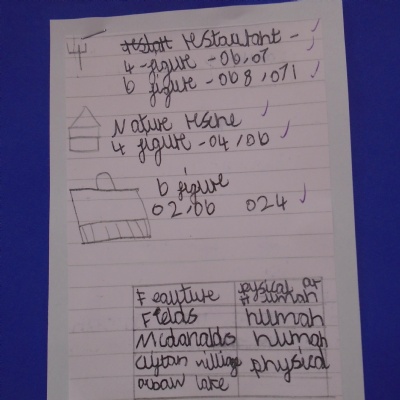 restart restaurant -
4-figure - 06,07
6 figure - 068,071
Nature resere
4 figure - 04/06
6 figure
02,06 024
Feauture physical or human
Fields human
Mcdonalds human
village physical
lake